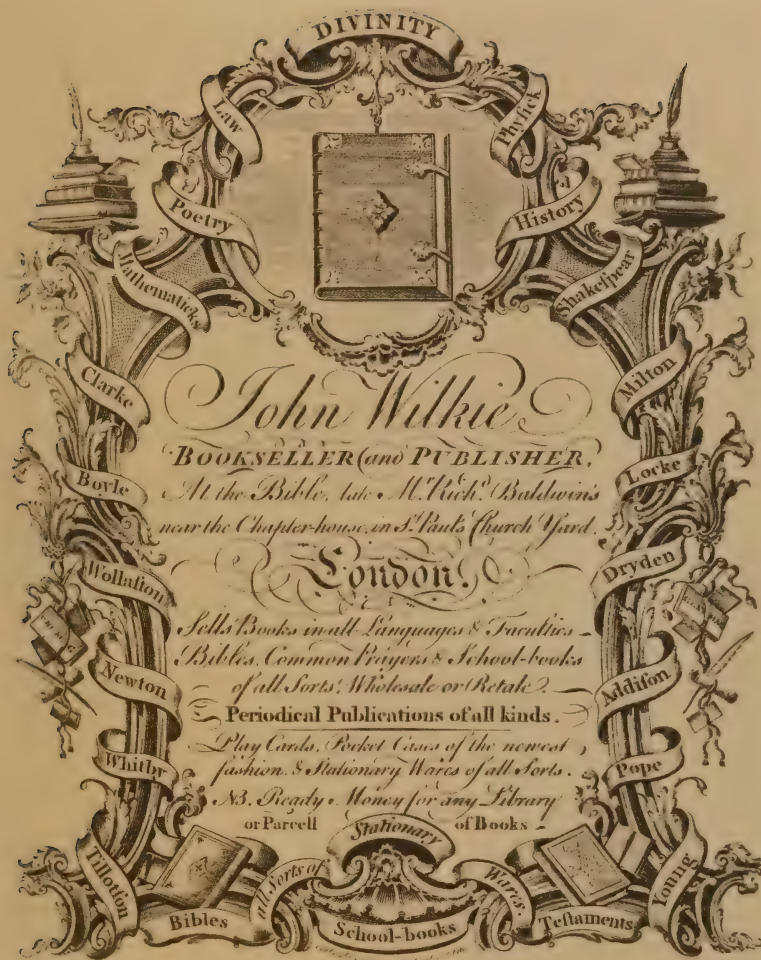 DIVINITY
Law
Phyſick
Poetry
History
Mathematicks
Shakeſpear
Clarke
Milton
Boyle
Locke
Wollaſton
Dryden
Newton
Addiſon
Whitby
Pope
Tillotſon
Young
John Wilkie,
BOOKSELLER and PUBLISHER,
At the Bible, late Mr. Richd. Baldwin's
near the Chapter-house, in St. Paul's Church Yard.
London.
Sells Books in all Languages & Faculties
Bibles, Common Prayers & School-books
of all Sorts, Wholesale or Retale.
Periodical Publications of all kinds.
Play Cards, Pocket Cases of the newest
fashion, & Stationary Wares of all Sorts.
NB. Ready Money for any Library
or Parcell of Books
all Sorts of Stationary Wares.
Bibles
School-books
Teſtaments